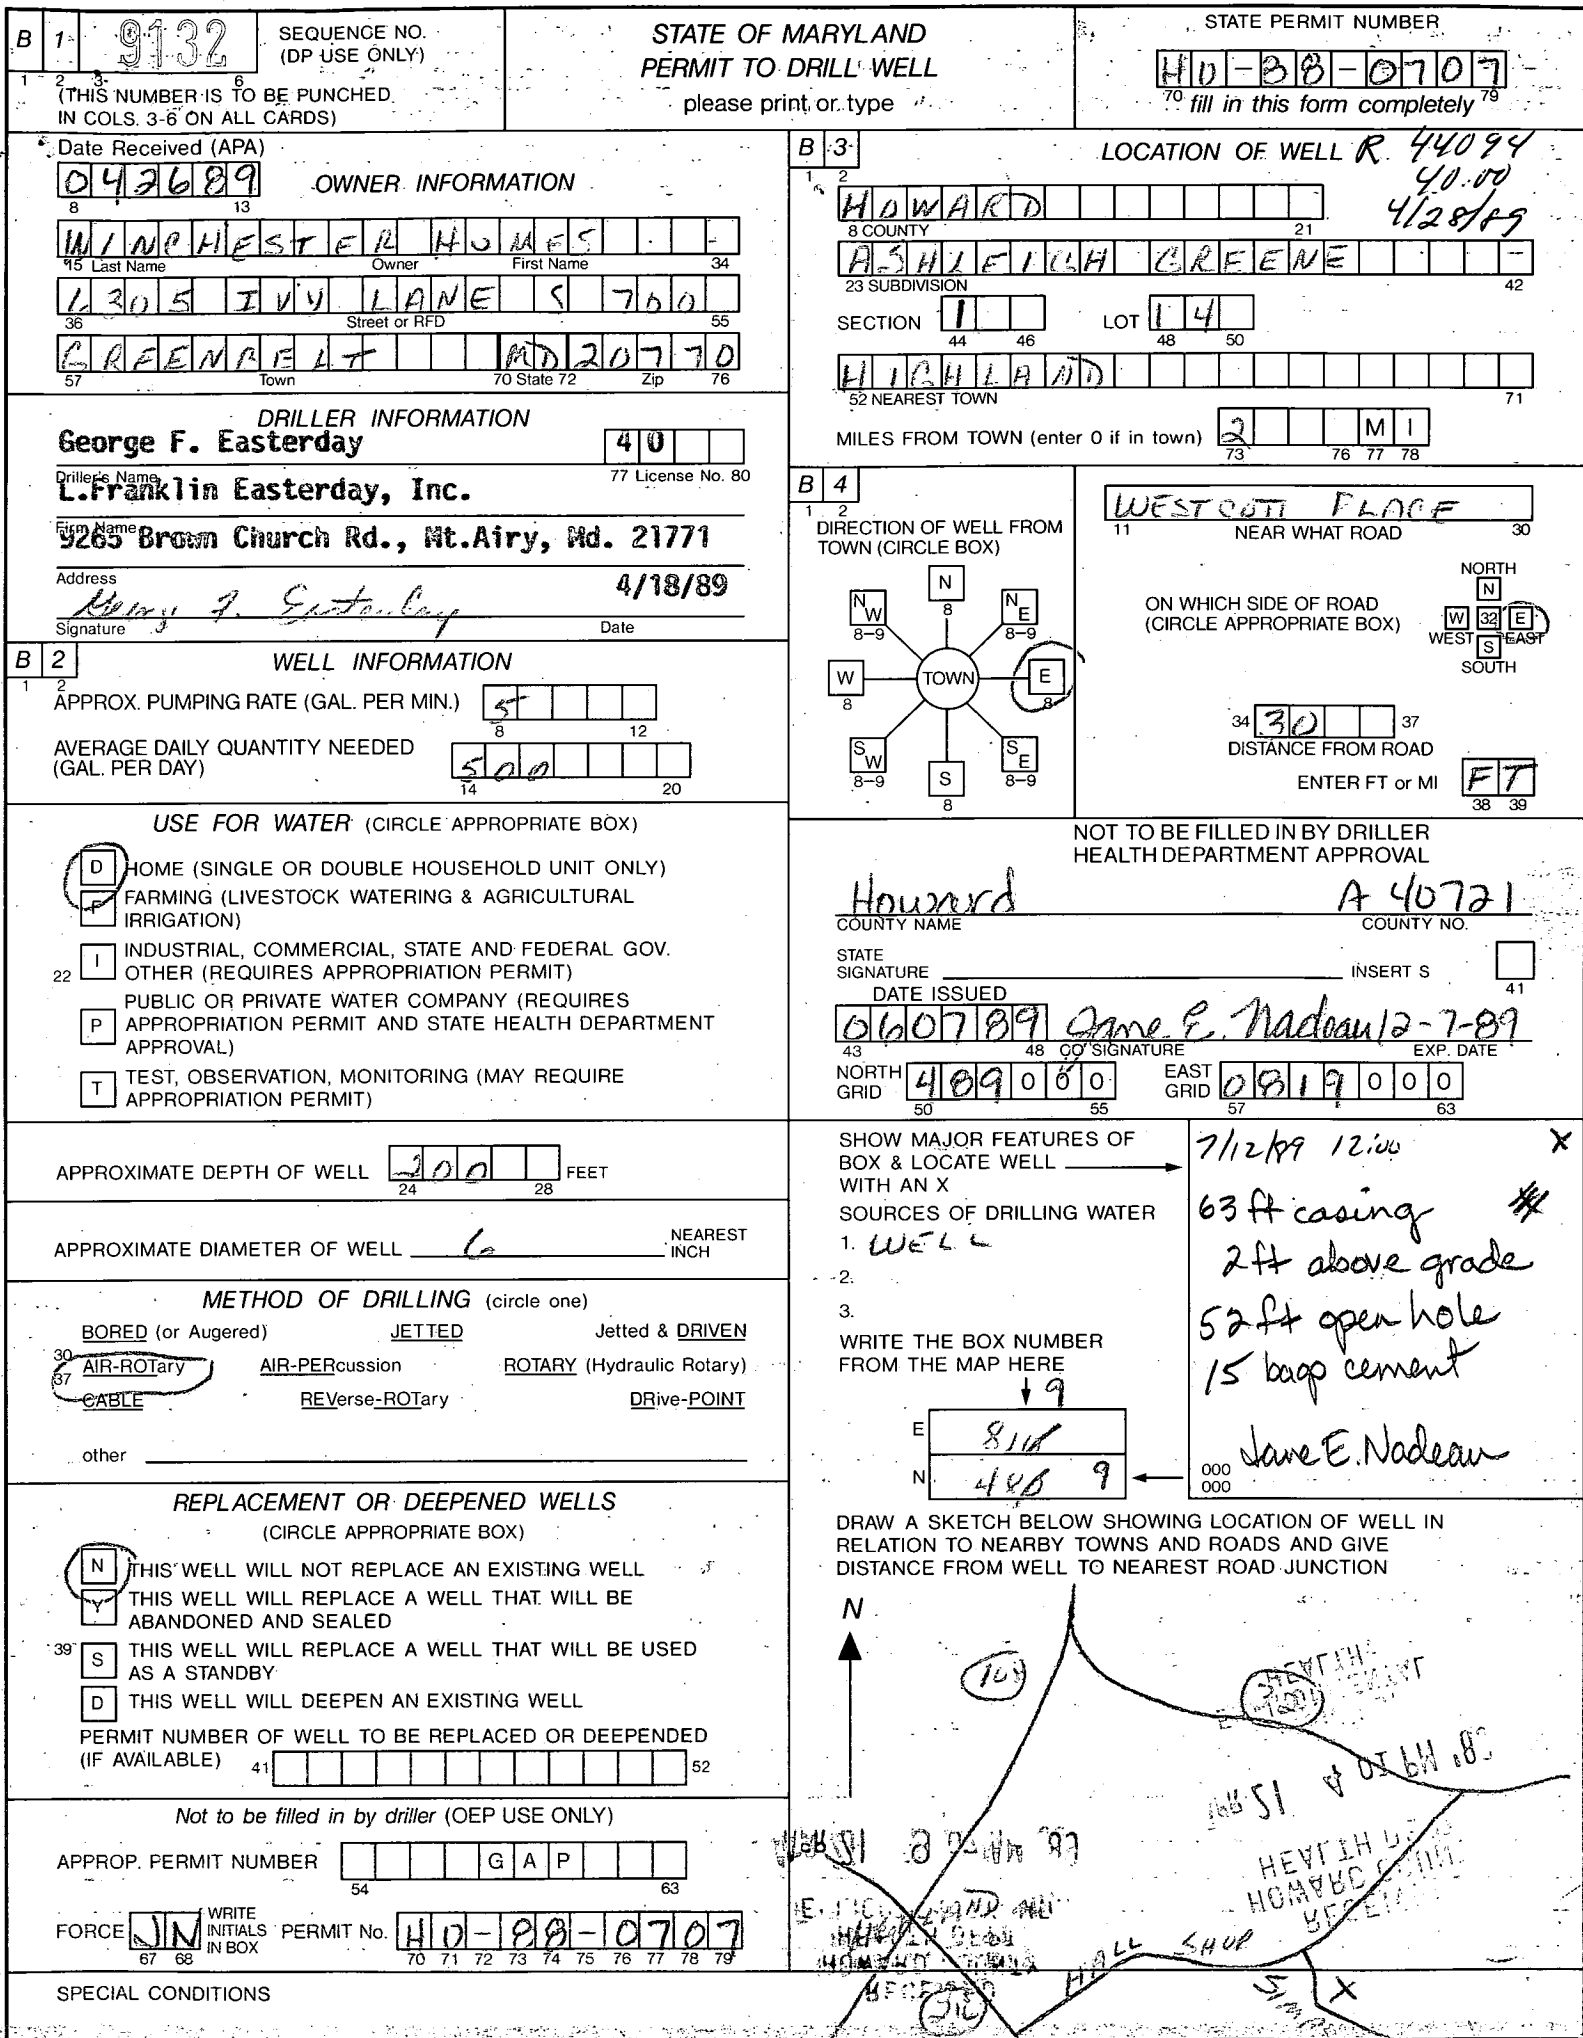 B 1 9132 SEQUENCE NO. (DP USE ONLY)
1 2 3 6
(THIS NUMBER IS TO BE PUNCHED IN COLS. 3-6 ON ALL CARDS)
STATE OF MARYLAND
PERMIT TO DRILL WELL
please print or type
STATE PERMIT NUMBER
HO-88-0707
70 fill in this form completely 79
Date Received (APA)
042689
8 13
OWNER INFORMATION
WINCHESTER HOMES
15 Last Name Owner First Name 34
6305 IVY LANE S 700
36 Street or RFD 55
GREENBELT MD 20770
57 Town 70 State 72 Zip 76
DRILLER INFORMATION
George F. Easterday 40
Driller's Name 77 License No. 80
L.Franklin Easterday, Inc.
Firm Name
9265 Brown Church Rd., Mt.Airy, Md. 21771
Address
George F. Easterday 4/18/89
Signature Date
B 2 WELL INFORMATION
1 2
APPROX. PUMPING RATE (GAL. PER MIN.) 5
8 12
AVERAGE DAILY QUANTITY NEEDED
(GAL. PER DAY) 500
14 20
USE FOR WATER (CIRCLE APPROPRIATE BOX)
D HOME (SINGLE OR DOUBLE HOUSEHOLD UNIT ONLY)
F FARMING (LIVESTOCK WATERING & AGRICULTURAL
IRRIGATION)
22 I INDUSTRIAL, COMMERCIAL, STATE AND FEDERAL GOV.
OTHER (REQUIRES APPROPRIATION PERMIT)
P PUBLIC OR PRIVATE WATER COMPANY (REQUIRES
APPROPRIATION PERMIT AND STATE HEALTH DEPARTMENT
APPROVAL)
T TEST, OBSERVATION, MONITORING (MAY REQUIRE
APPROPRIATION PERMIT)
APPROXIMATE DEPTH OF WELL 200 FEET
24 28
APPROXIMATE DIAMETER OF WELL 6 NEAREST INCH
METHOD OF DRILLING (circle one)
BORED (or Augered) JETTED Jetted & DRIVEN
30 AIR-ROTary AIR-PERcussion ROTARY (Hydraulic Rotary)
37 CABLE REVerse-ROTary DRive-POINT
other
REPLACEMENT OR DEEPENED WELLS
(CIRCLE APPROPRIATE BOX)
N THIS WELL WILL NOT REPLACE AN EXISTING WELL
Y THIS WELL WILL REPLACE A WELL THAT WILL BE
ABANDONED AND SEALED
39 S THIS WELL WILL REPLACE A WELL THAT WILL BE USED
AS A STANDBY
D THIS WELL WILL DEEPEN AN EXISTING WELL
PERMIT NUMBER OF WELL TO BE REPLACED OR DEEPENDED
(IF AVAILABLE) 41 52
Not to be filled in by driller (OEP USE ONLY)
APPROP. PERMIT NUMBER GAP
54 63
FORCE JN WRITE INITIALS IN BOX PERMIT No. HO-88-0707
67 68 70 71 72 73 74 75 76 77 78 79
SPECIAL CONDITIONS
B 3 LOCATION OF WELL R 44094
1 2 40.00
HOWARD 4/28/89
8 COUNTY 21
ASHLEIGH GREENE
23 SUBDIVISION 42
SECTION 1 LOT 14
44 46 48 50
HIGHLAND
52 NEAREST TOWN 71
MILES FROM TOWN (enter 0 if in town) 2 MI
73 76 77 78
B 4
1 2
DIRECTION OF WELL FROM
TOWN (CIRCLE BOX)
N 8
NW 8-9 NE 8-9
W 8 TOWN E 8
SW 8-9 SE 8-9
S 8
WESTCOTT PLACE
11 NEAR WHAT ROAD 30
ON WHICH SIDE OF ROAD
(CIRCLE APPROPRIATE BOX)
NORTH
N
W 32 E
WEST EAST
S
SOUTH
34 30 37
DISTANCE FROM ROAD
ENTER FT or MI FT
38 39
NOT TO BE FILLED IN BY DRILLER
HEALTH DEPARTMENT APPROVAL
Howard A 40721
COUNTY NAME COUNTY NO.
STATE
SIGNATURE INSERT S
41
DATE ISSUED
060789 Jane E. Nadeau 12-7-89
43 48 CO SIGNATURE EXP. DATE
NORTH GRID 489000 EAST GRID 0819000
50 55 57 63
SHOW MAJOR FEATURES OF
BOX & LOCATE WELL
WITH AN X
SOURCES OF DRILLING WATER
1. WELL
2.
3.
WRITE THE BOX NUMBER
FROM THE MAP HERE
9
E 818
N 488 9
7/12/89 12:00 X
63 ft casing
2ft above grade
52ft open hole
15 bags cement
Jane E. Nadeau
000
000
DRAW A SKETCH BELOW SHOWING LOCATION OF WELL IN
RELATION TO NEARBY TOWNS AND ROADS AND GIVE
DISTANCE FROM WELL TO NEAREST ROAD JUNCTION
N
108
HEALTH
APR 21 4 01 PM '89
HEALTH DEPT
HOWARD COUNTY
RECEIVED
HIGHLAND
HOWARD COUNTY
RECEIVED
216
HALL SHOP
X